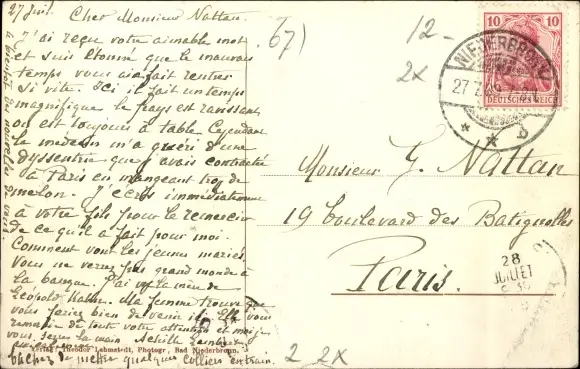 27 Juil. Cher Monsieur Nattan.
J'ai reçu votre aimable mot
et suis étonné que le mauvais
temps vous ai fait rentrer
si vite. Ici il fait un temps
magnifique le pays est ravissant
on est toujours à table Cependant
le médecin m'a guéri d'une
dyssentrie que j'avais contractée
à Paris en mangeant trop de
melon. J'écris immédiatement
à votre fils pour le remercier
de ce qu'il a fait pour moi.
Comment vont les jeunes mariés.
Vous ne verrez pas grand monde à
la banque. J'ai vu la mère de
Léopold Kahn. Ma femme trouve que
vous feriez bien de venir ici. Elle vous
remercie de toute votre attention et moi je
vous serre la main Achille
Verlag Theodor Lehmstedt, Photogr., Bad Niederbronn.
tachez de mettre quelques colliers en train.
à bientôt de nouvelles
67)
12-
2x
10 10
DEUTSCHES REICH
NIEDERBRONN
27 7
Monsieur G. Nattan
19 boulevard des Batignolles
Paris.
28
JUILLET
2 2x